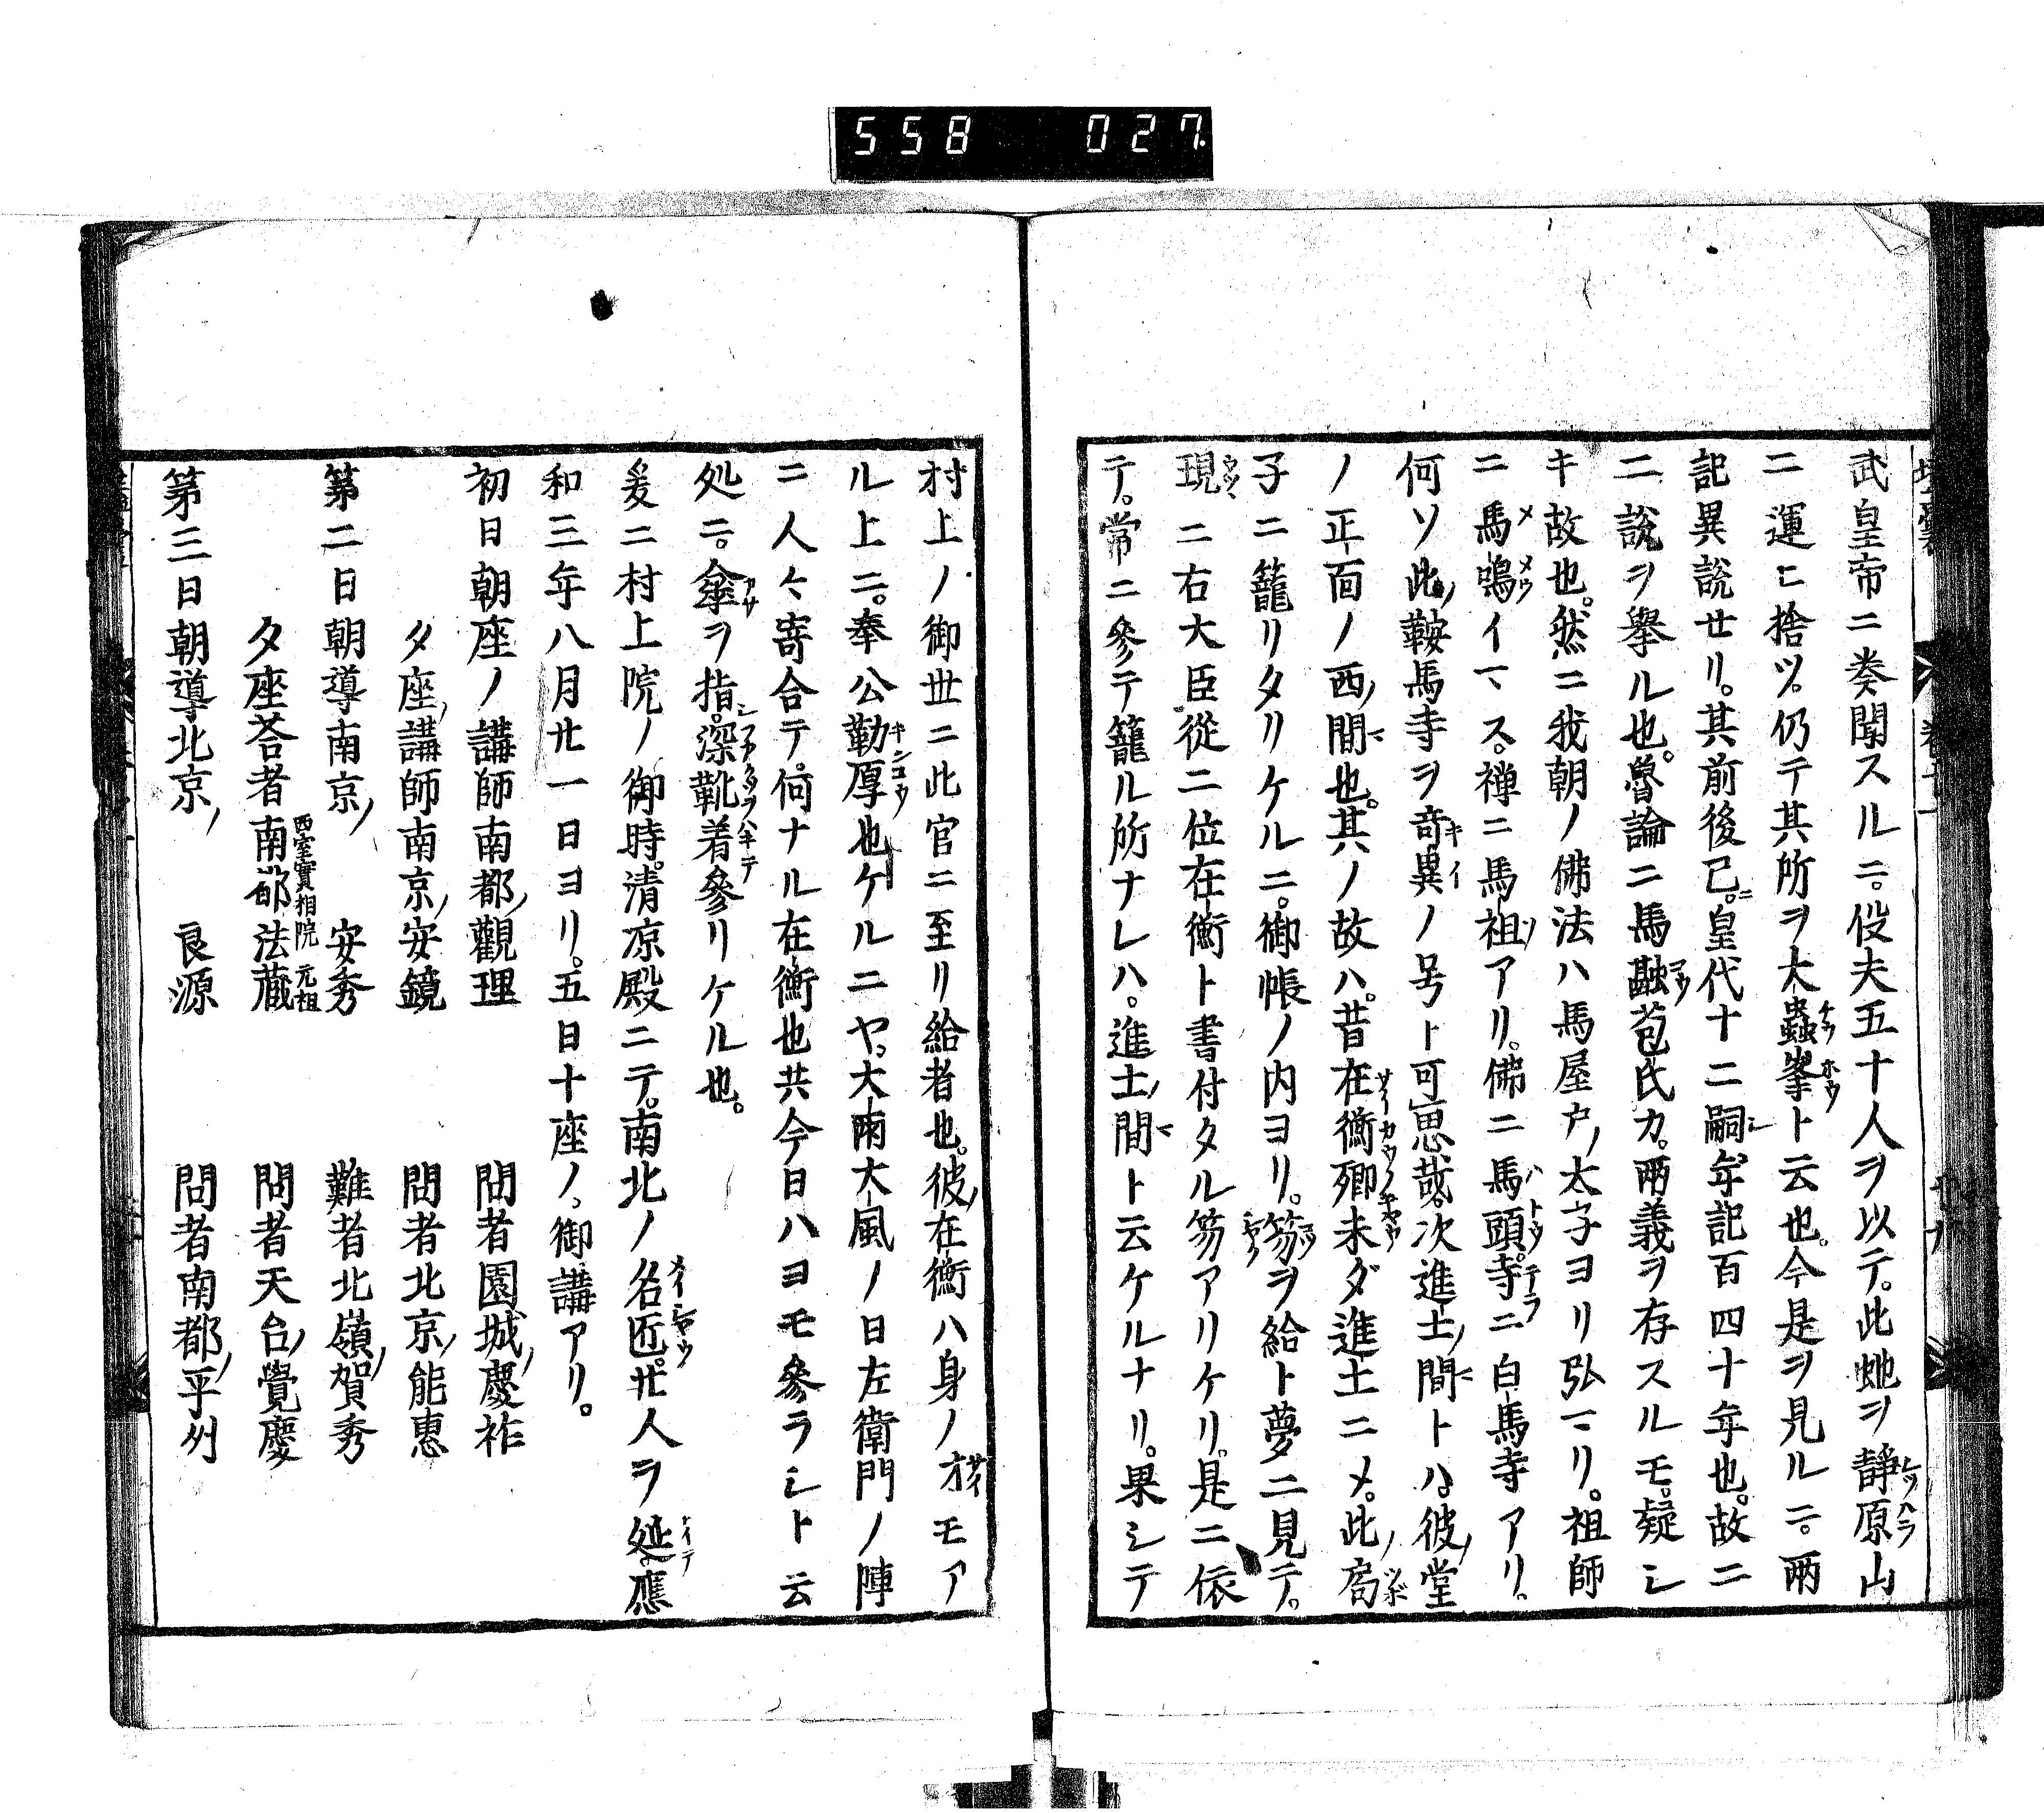 558 027
武皇帝ニ奏聞スルニ。伇夫五十人ヲ以テ。此虵ヲ靜原山
ニ運ヒ捨ツ。仍テ其所ヲ大蟲峯ト云也。今是ヲ見ルニ。兩
記異説せリ。其前後已ニ。皇代十二嗣。年記百四十年也。故ニ
二説ヲ擧ル也。魯論ニ馬融苞氏カ。兩義ヲ存スルモ。疑シ
キ故也。然ニ我朝ノ佛法ハ馬屋戸ノ太子ヨリ弘マリ。祖師
ニ馬鳴イマス。禅ニ馬祖アリ。佛ニ馬頭。寺ニ白馬寺アリ。
何ソ此ノ鞍馬寺ヲ竒異ノ号ト可思哉。次進士ノ間トハ彼ノ堂
ノ正面ノ西ノ間也。其ノ故ハ。昔在衡卿未ダ進士ニメ。此ノ局
子ニ籠リタリケルニ。御帳ノ内ヨリ。笏ヲ給ト夢ニ見テ。
現ニ右大臣從二位在衡ト書付タル笏アリケリ。是ニ依
テ。常ニ參テ籠ル所ナレハ。進士ノ間ト云ケルナリ。果シテ
村上ノ御世ニ此官ニ至リ給者也。彼ノ在衡ハ身ノ才モア
ル上ニ。奉公勤厚也ケルニヤ。大雨大風ノ日左衛門ノ陣
ニ人々寄合テ。何ナル在衡也共今日ハヨモ參ラシト云
処ニ。傘ヲ指。深靴着參リケル也。
爰ニ村上院ノ御時。清凉殿ニテ。南北ノ名匠廿人ヲ延。應
和三年八月廿一日ヨリ。五日十座ノ御講アリ。
初日朝座ノ講師南都ノ觀理 問者園城ノ慶祚
夕座ノ講師南京ノ安鏡 問者北京ノ能惠
第二日朝導南京ノ 安秀 難者北嶺ノ賀秀
夕座荅者南都法藏 西室實相院元祖 問者天台ノ覺慶
第三日朝導北京ノ 良源 問者南都ノ平州